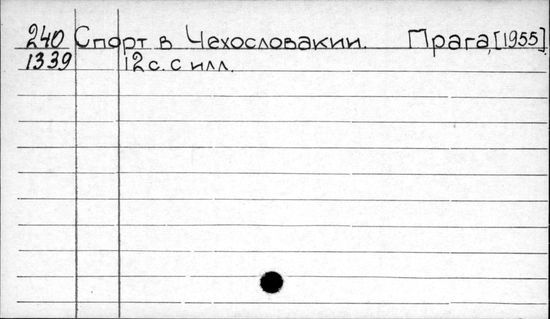 240 Спорт в Чехословакии. Прага, [1955].
1339 12 с. с илл.